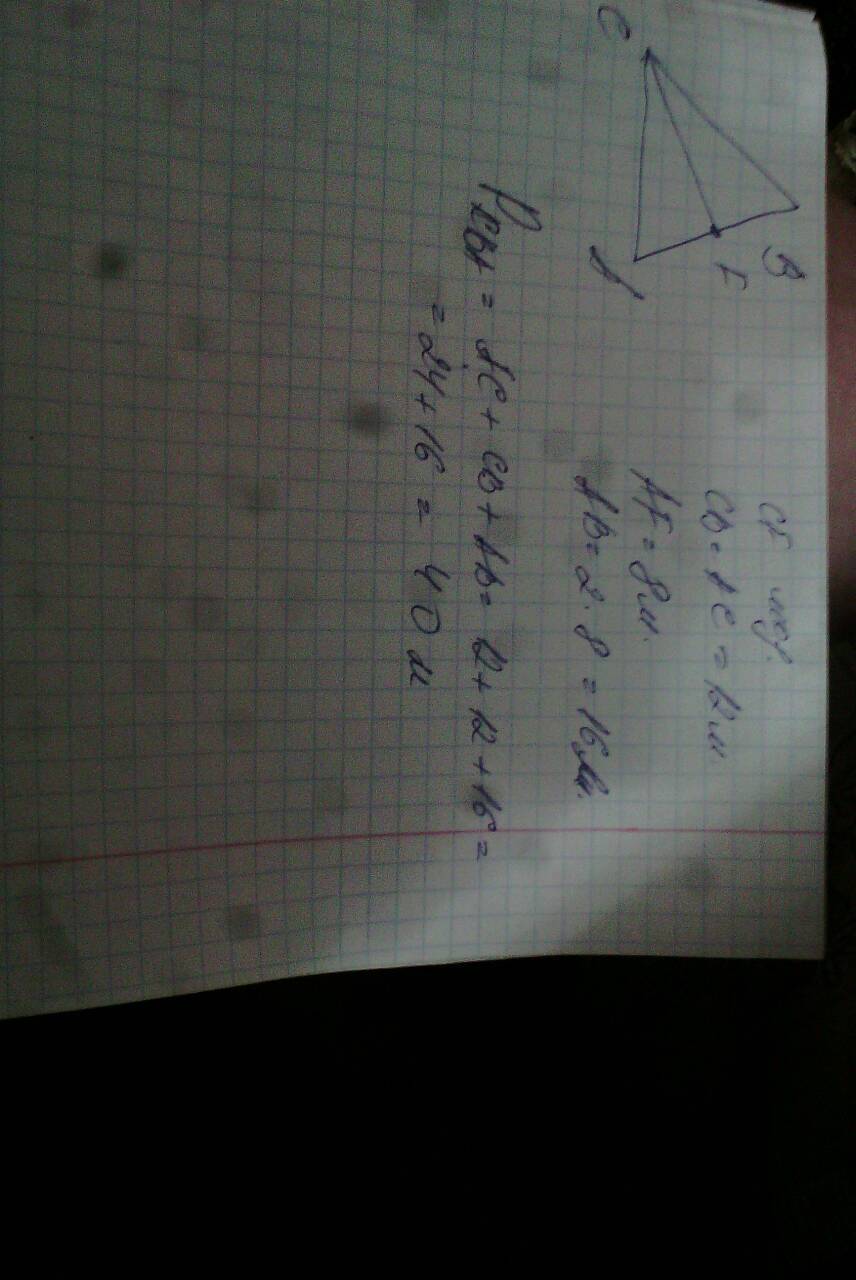 C
B
F
A
CF мед.
CB = AC = 12 м
AF = 8 м.
AB = 2 · 8 = 16 м.
P CBA = AC + CB + AB = 12 + 12 + 16 =
= 24 + 16 = 40 м